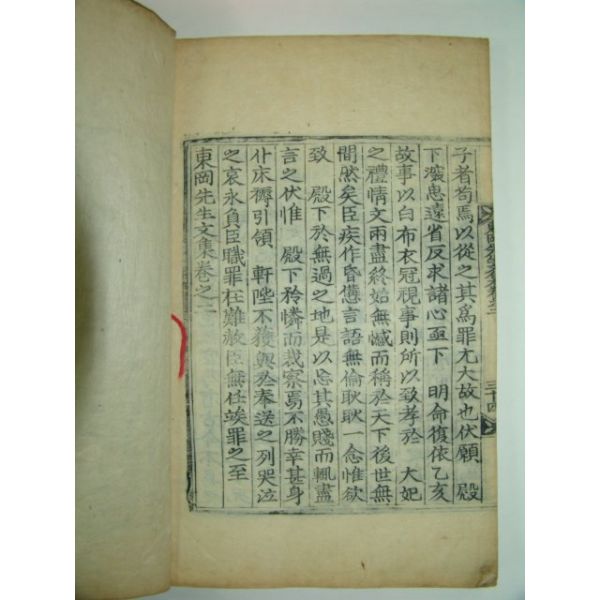 子者苟焉以從之其爲罪尤大故也伏願 殿
下濬忠遠省反求諸心亟下 明命復依乙亥
故事以白布衣冠視事則所以致孝於 大妃
之禮情文兩盡終始無憾而稱於天下後世無
間然矣臣疾作昏憊言語無倫耿耿一念惟欲
致 殿下於無過之地是以忘其愚賤而輒盡
言之伏惟 殿下矜憐而裁察焉不勝幸甚身
仆床褥引領 軒陛不獲與於奉送之列哭泣
之哀永負臣職罪在難赦臣無任竢罪之至
東岡先生文集卷之二
三十四